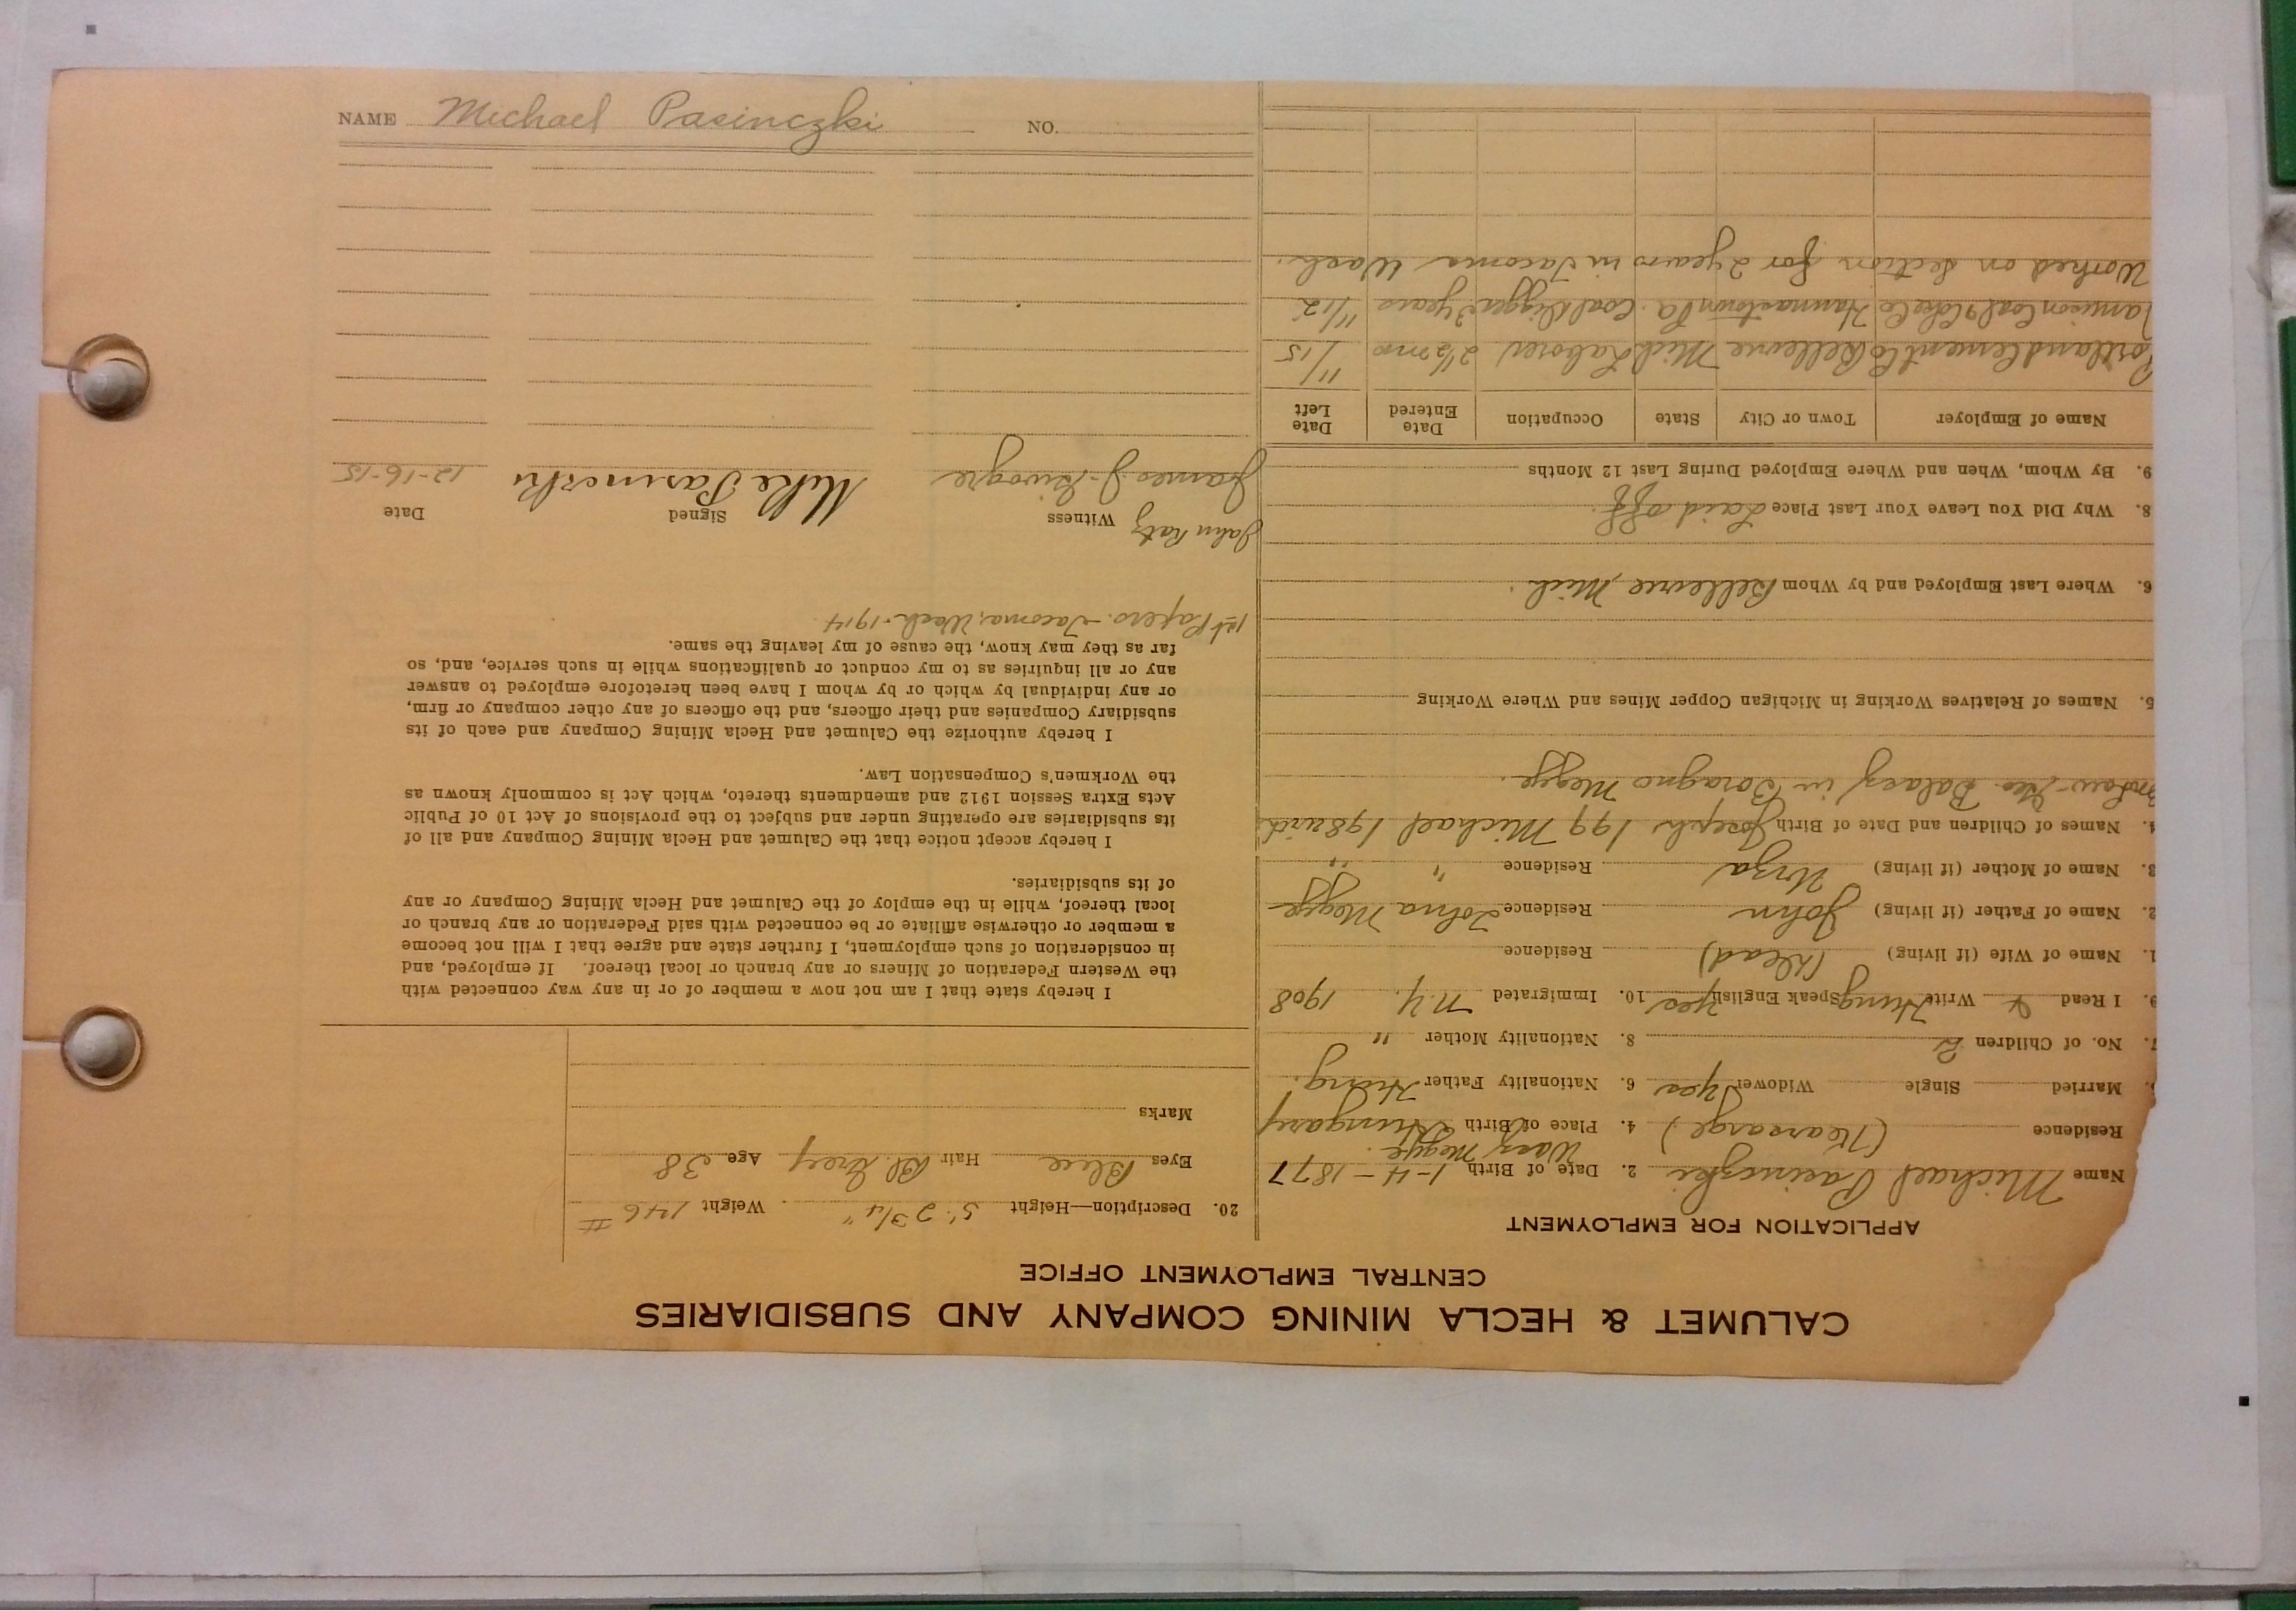 CALUMET & HECLA MINING COMPANY AND SUBSIDIARIES
CENTRAL EMPLOYMENT OFFICE
APPLICATION FOR EMPLOYMENT
Name Michael Pasinczki 2. Date of Birth 1-4-1877
Residence (Kearsarge) 4. Place of Birth Hungary
Megye.
Married Single Widower yes 6. Nationality Father Hung.
7. No. of Children 2 8. Nationality Mother "
9. I Read & Write Hung Speak English yes 10. Immigrated N.Y. 1908
1. Name of Wife (if living) (Dead) Residence
2. Name of Father (if living) John Residence Tolna Megye
3. Name of Mother (if living) Residence " "
4. Names of Children and Date of Birth Joseph 199 Michael 198
in Megye.
5. Names of Relatives Working in Michigan Copper Mines and Where Working
6. Where Last Employed and by Whom Bellevue, Mich.
8. Why Did You Leave Your Last Place Laid off.
9. By Whom, When and Where Employed During Last 12 Months
Name of Employer Town or City State Occupation Date Entered Date Left
Portland Cement Co Bellevue Mich Laborer 2½ mos 11/15
Jamison Coal & Coke Co Pa. Coal Digger 3 years 11/12
Worked on Section for 2 years in Tacoma Wash.
20. Description—Height 5' 2 3/4" Weight 146 #
Eyes Blue Hair Bl. Grey Age 38
Marks
I hereby state that I am not now a member of or in any way connected with
the Western Federation of Miners or any branch or local thereof. If employed, and
in consideration of such employment, I further state and agree that I will not become
a member or otherwise affiliate or be connected with said Federation or any branch or
local thereof, while in the employ of the Calumet and Hecla Mining Company or any
of its subsidiaries.
I hereby accept notice that the Calumet and Hecla Mining Company and all of
its subsidiaries are operating under and subject to the provisions of Act 10 of Public
Acts Extra Session 1912 and amendments thereto, which Act is commonly known as
the Workmen's Compensation Law.
I hereby authorize the Calumet and Hecla Mining Company and each of its
subsidiary Companies and their officers, and the officers of any other company or firm,
or any individual by which or by whom I have been heretofore employed to answer
any or all inquiries as to my conduct or qualifications while in such service, and, so
far as they may know, the cause of my leaving the same.
1st Papers. Tacoma, Wash. 1914
John Ratz Witness Signed Date
James J. Mike Pasinczki 12-16-15
NAME Michael Pasinczki NO.